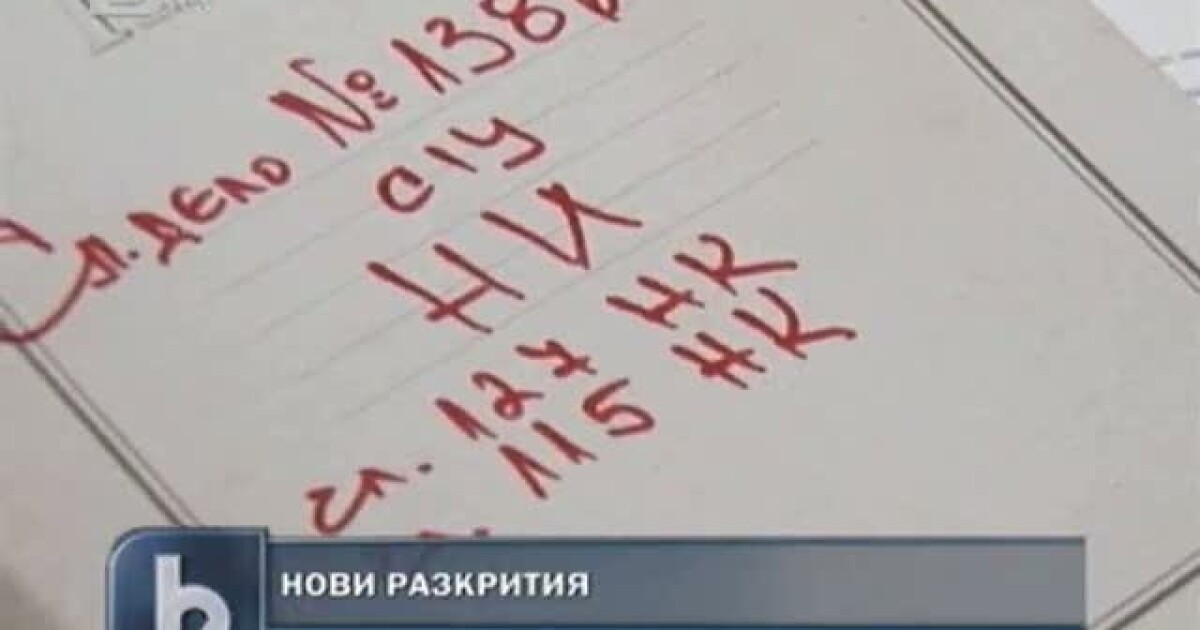 сл. ДЕЛО № 138
СГУ
НИ
чл. 127 НК
115 НК
НОВИ РАЗКРИТИЯ